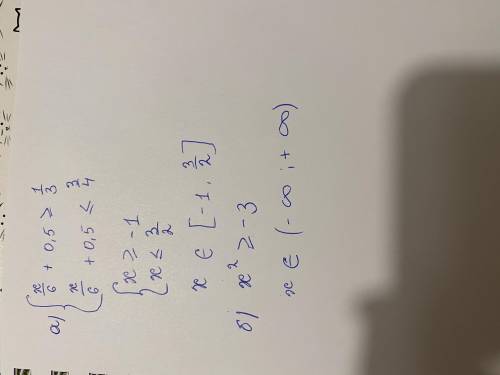 а) { x/6 + 0,5 ≥ 1/3
x/6 + 0,5 ≤ 3/4
{ x ≥ -1
x ≤ 3/2
x ∈ [-1, 3/2]
б) x² ≥ -3
x ∈ (-∞ ; +∞)